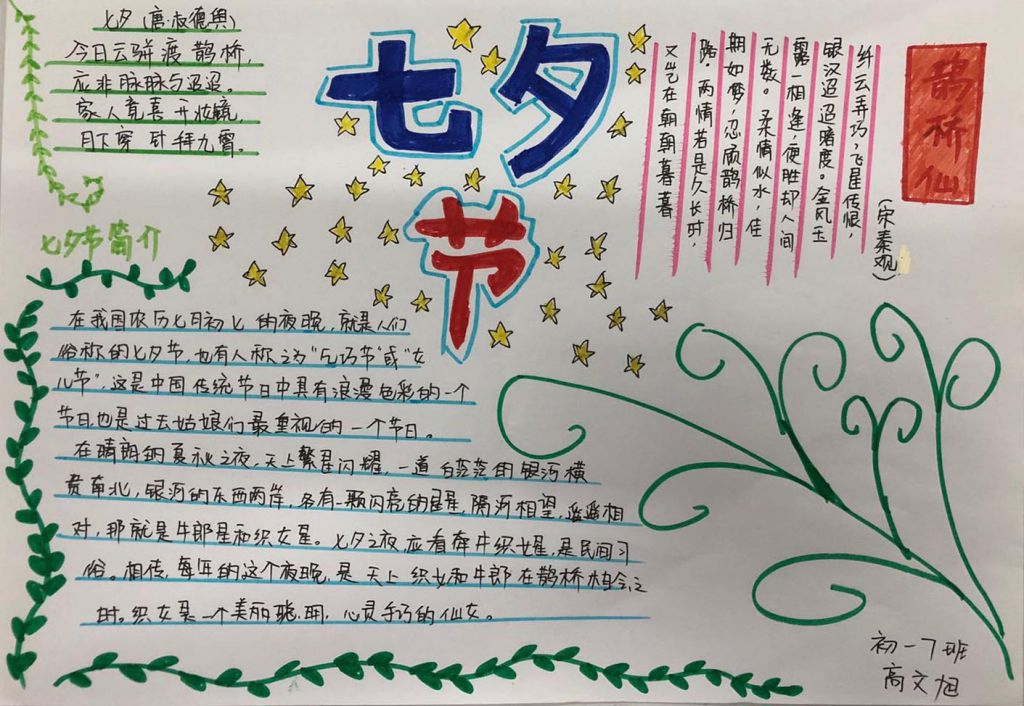 七夕(唐·权德舆)
今日云骈渡鹊桥,
应非脉脉与迢迢。
家人竟喜开妆镜,
月下穿针拜九霄。
七夕
节
鹊桥仙
(宋秦观)
纤云弄巧,飞星传恨,
银汉迢迢暗度。金风玉
露一相逢,便胜却人间
无数。柔情似水,佳
期如梦,忍顾鹊桥归
路。两情若是久长时,
又岂在朝朝暮暮
七夕节简介
在我国农历七月初七的夜晚,就是人们
俗称的七夕节,也有人称之为"乞巧节"或"女
儿节",这是中国传统节日中具有浪漫色彩的一个
节日,也是过去姑娘们最重视的一个节日。
在晴朗的夏秋之夜,天上繁星闪耀,一道白茫茫的银河横
贯南北,银河的东西两岸,各有一颗闪亮的星星,隔河相望,遥遥相
对,那就是牛郎星和织女星。七夕之夜,应看牵牛织女星,是民间习
俗。相传,每年的这个夜晚,是天上织女和牛郎在鹊桥相会之
时。织女是一个美丽聪明,心灵手巧的仙女。
初一7班
高文旭